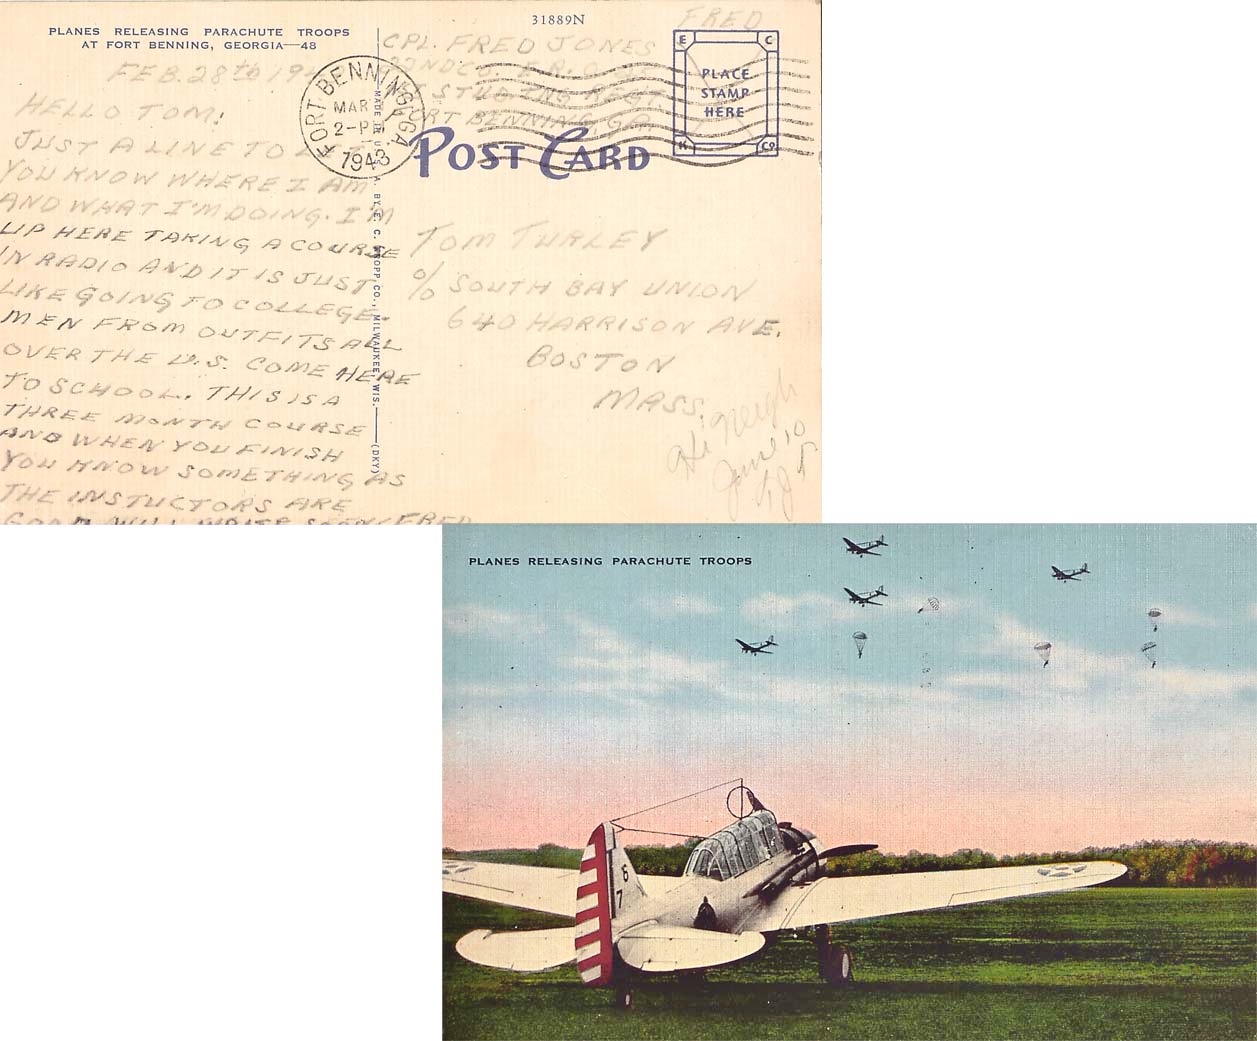 PLANES RELEASING PARACHUTE TROOPS
AT FORT BENNING, GEORGIA—48
FEB. 28th 19
HELLO TOM!
JUST A LINE TO LET
YOU KNOW WHERE I AM
AND WHAT I'M DOING. I'M
UP HERE TAKING A COURSE
IN RADIO AND IT IS JUST
LIKE GOING TO COLLEGE.
MEN FROM OUTFITS ALL
OVER THE U.S. COME HERE
TO SCHOOL. THIS IS A
THREE MONTH COURSE
AND WHEN YOU FINISH
YOU KNOW SOMETHING AS
THE INSTUCTORS ARE
GOOD. WILL WRITE SOON. FRED
MADE IN U.S.A. BY E. C. KROPP CO., MILWAUKEE, WIS. (DKY)
31889N
FRED
CPL. FRED JONES
22ND CO.
STUD. TNG REGT.
FORT BENNING, GA.
FORT BENNING, GA
MAR
2-P
1943
POST CARD
E C
PLACE
STAMP
HERE
K Co
TOM TURLEY
% SOUTH BAY UNION
640 HARRISON AVE.
BOSTON
MASS.
June 10
PLANES RELEASING PARACHUTE TROOPS
6
7